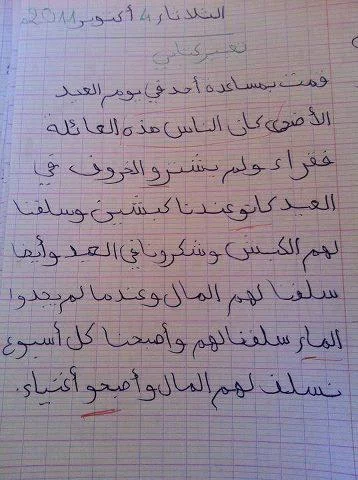 الثلاثاء 4 أكتوبر 2011م
تعبير كتابي
قمت بمساعدة أحد في يوم العيد
الأضحى كان الناس هذه العائلة
فقراء ولم يشترو الخروف في
العيد كانو عندنا كبشين وسلفنا
لهم الكبش وشكرونا في العيد وأيضا
سلفنا لهم المال وعندما لم يجدوا
الماء سلفنا لهم وأصبحنا كل أسبوع
نسلف لهم المال وأصبحو أغنياء.